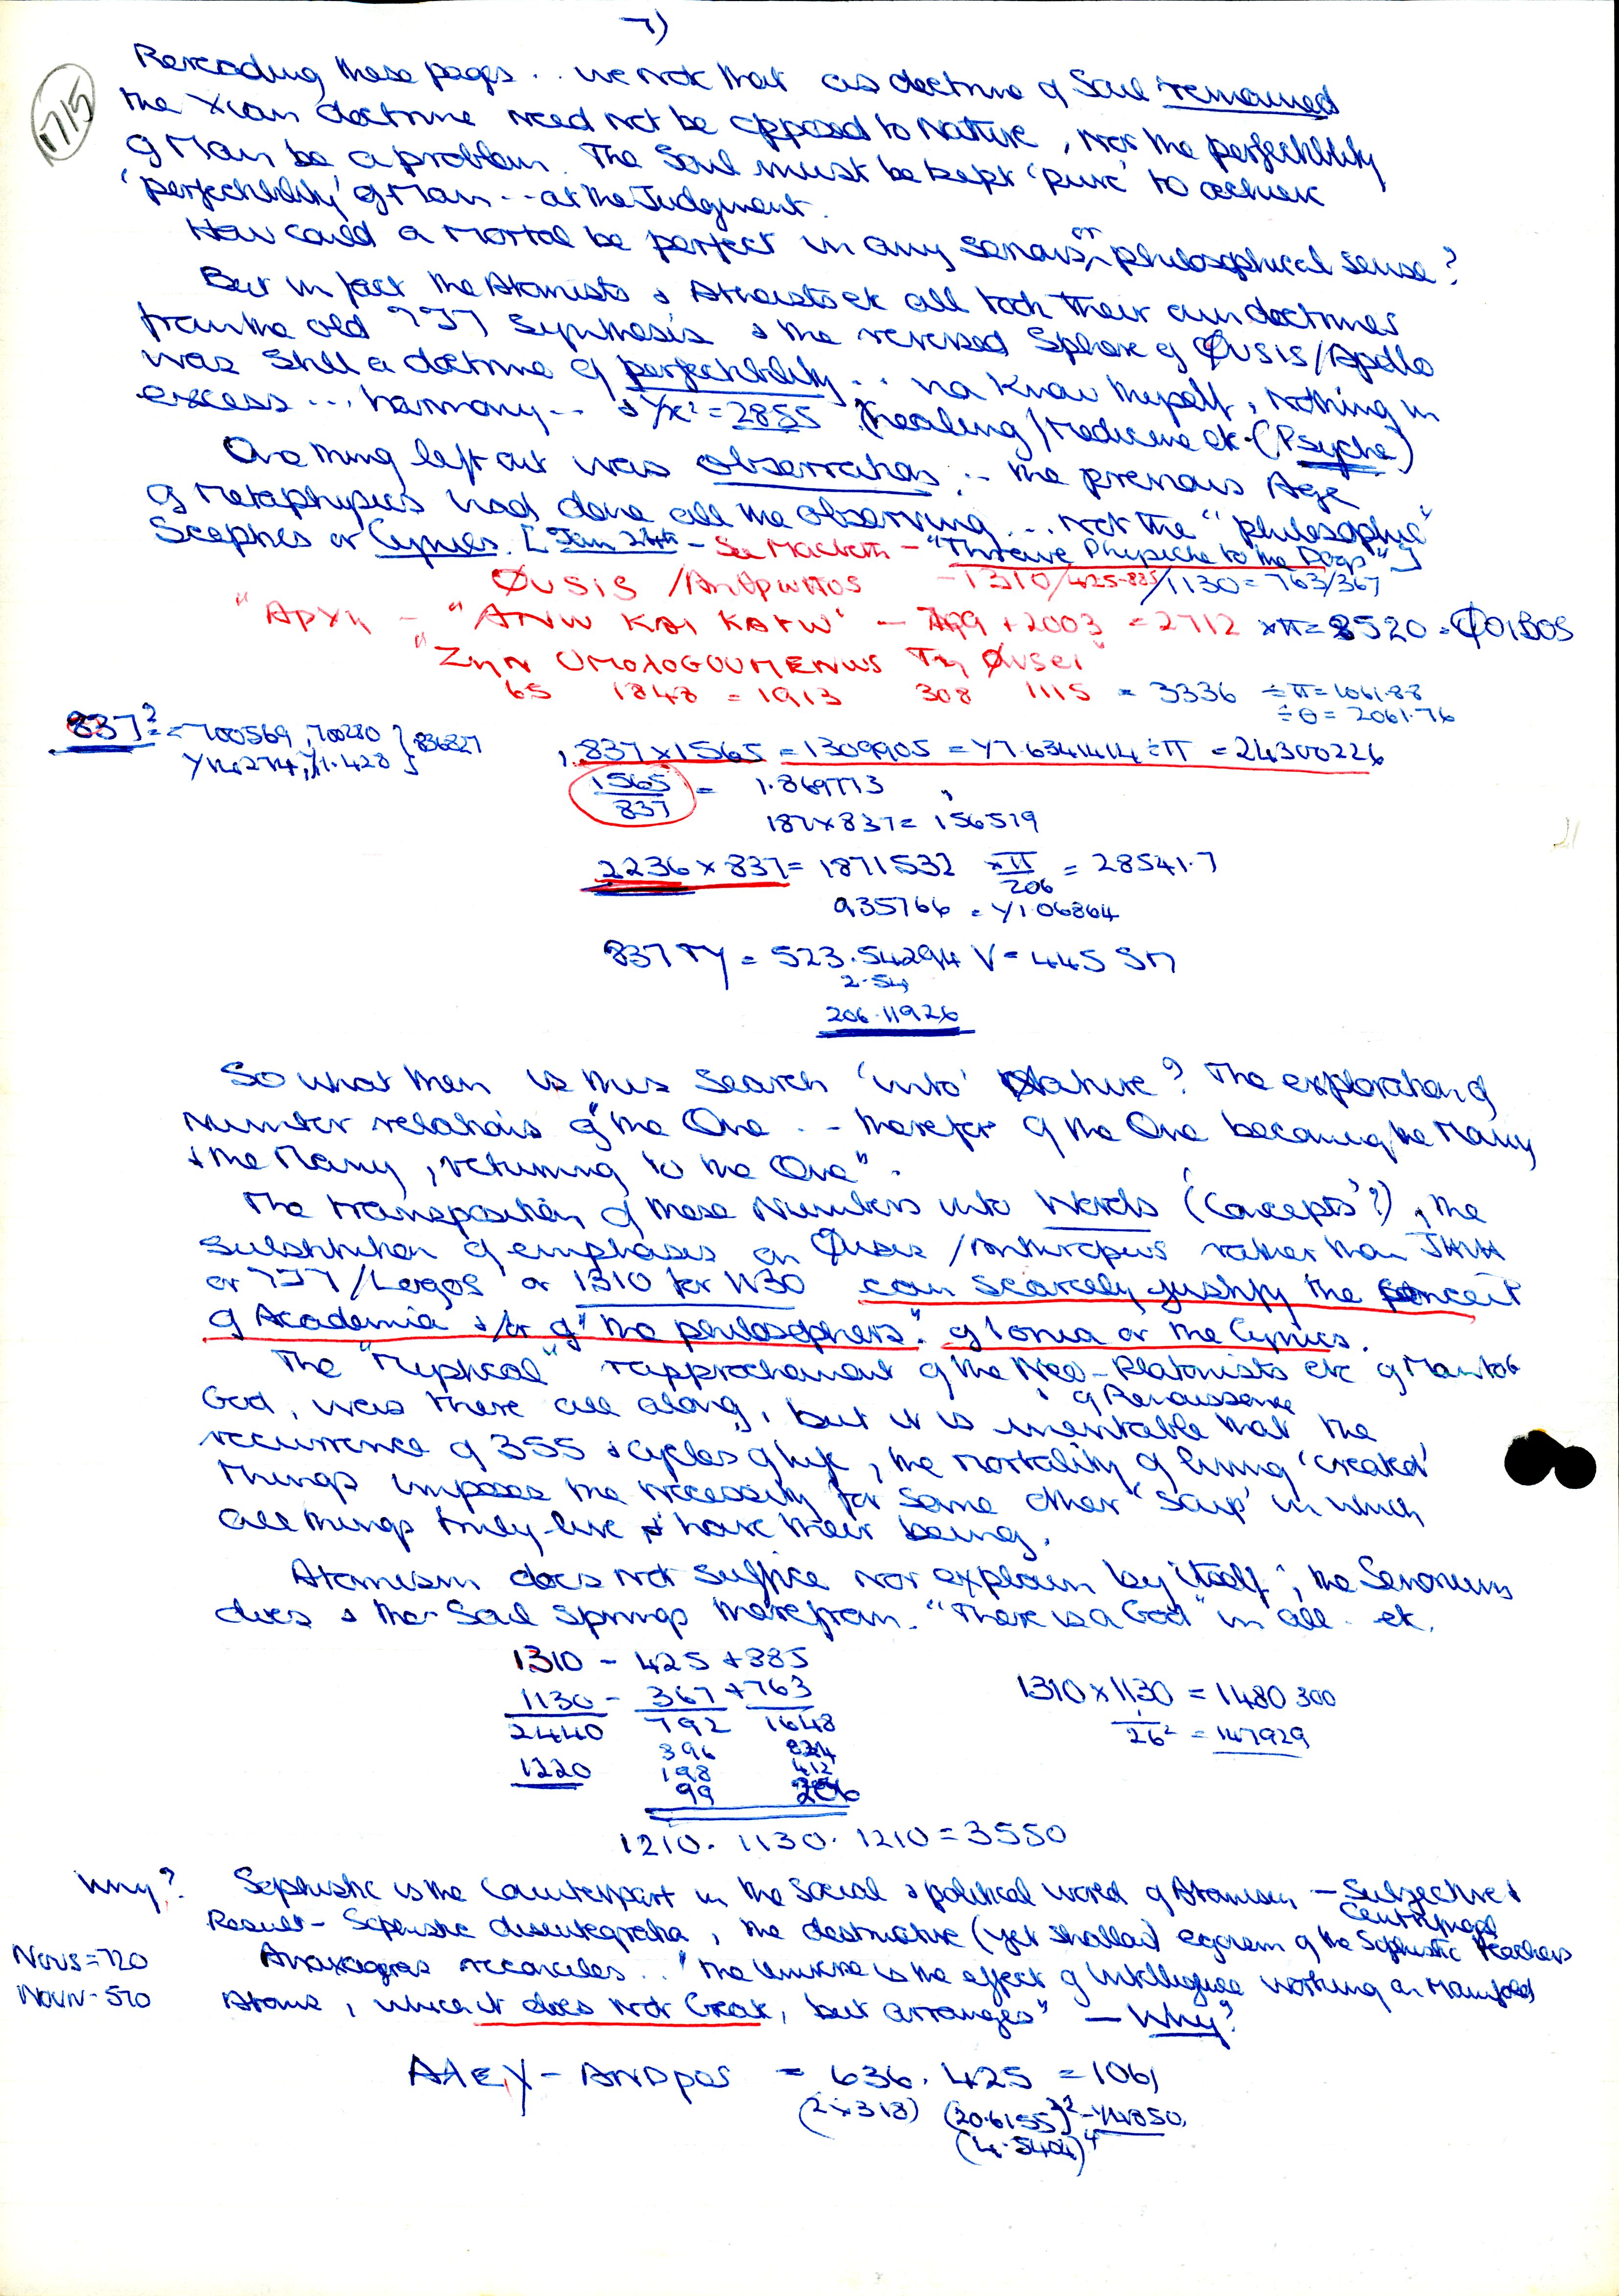 7)
1715
Rereading these pages .. we note that as doctrine of Soul remained
the Xian doctrine need not be opposed to Nature, nor the perfectibility
of Man be a problem. The Soul must be kept 'pure' to achieve
'perfectibility' of Man ... at the Judgment.
How could a mortal be perfect in any serious, or philosophical sense?
But in fact the Atomists & Atheists etc all took their own doctrines
from the old synthesis & the reversed Sphere of ΦUSIS/Apollo
was still a doctrine of perfectibility ... Know thyself, Nothing in
excess ... harmony ... = 2855 (healing/Medicine etc. (Psyche)
One thing left out was observation ... the previous Age
of Metaphysics had done all the observing ... not the "philosophic"
Sceptics or Cynics. [Jan 24th - See Macbeth - "Throwe Physicke to the Dogs"]
ΦUSIS / ANθρωπος - 1310/425-885/1130 = 763/367
"Αρχη - "ΑΝω ΚΑΙ ΚΑΤω" - 709 + 2003 = 2712 xπ = 8520 = ΦΟΙΒΟS
"ΖηΝ ΟΜολογουΜΕΝωs Τη Φυsει"
65 1848 = 1913 308 1115 = 3336 ÷π = 1061.88
÷θ = 2061.76
837² = 700569, 700280 } 836827
837 x 1565 = 1309905 = γ7.6341414 ÷π = 24300226
1565/837 = 1.869773
187 x 837 = 156519
2236 x 837 = 1871532 xπ/206 = 28541.7
935766 = γ1.06864
837πγ = 523.54294 V = 445 5π
2.54
206.11926
So what then is this search 'into' Nature? The exploration of
Number relations of "the One ... therefor of the One becoming the Many
& the Many, returning to the One".
The transposition of these Numbers into Words ('Concepts'?), the
substitution of emphases on Φusis /Anthropus rather than JHVH
or /Logos or 1310 for 1130 can scarcely justify the conceit
of Academia &/or of "the philosophers" of Ionia or the Cynics.
The "Mystical" rapprochement of the Neo-Platonists etc of Man to
of Renaissance
God, was there all along, but it is inevitable that the
recurrence of 355 & cycles of life, the mortality of living 'created'
things imposes the necessity for some other 'soup' in which
all things truly live & have their being.
Atomism does not suffice nor explain by itself; the
does & the Soul springs therefrom. "There is a God" in all. etc.
1310 - 425 + 885
1130 - 367 + 763
2440 792 1648
396 824
1220 198 412
99 206
1310 x 1130 = 1480300
1/26² = 147929
1210. 1130. 1210 = 3550
Why? Sophistic is the counterpart in the social & political world of Atomism - Subjective &
Centrifugal
Result - Sophistic disintegration, the destructive (yet shallow) egoism of the Sophistic Teachers
Nous = 720
Anaxagoras reconciles .. "the Universe is the effect of Intelligence working on Manifold
Noun - 570
Atoms, which it does not Create, but arranges" - Why?
ΑλΕΧ - ΑΝDροs = 636. 425 = 1061
(2x318) (20.6155)² - γ4850.
(4.5404)⁴